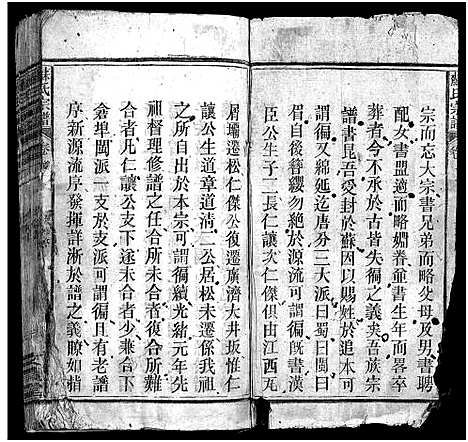 蘇氏宗譜
宗而忘大宗書兄弟而略父母及男書聘
配女書盟適而略孀眷爺書生年而畧卒
葬者今不承於古皆失徧之義矣吾族宗
譜書昆吾受封於蘇因以賜姓於追本可
謂徧又綿延迄唐分三大派曰蜀曰閩曰
眉自後簪纓勿絕於源流可謂徧旣書漢
臣公生子二長仁讓次仁傑俱由江西瓦
屑壩遷松仁傑公復遷廣濟大井坂惟仁
讓公生道章道清二公居松未遷係我祖
之所自出於本宗可謂徧續光緒元年先
祖督理修譜之任合所可合未嘗合所難
合者凡仁讓公支下遂未合者少兼合下
倉埠閩派一支於支派可謂徧且有老譜
序新源流序發揮詳晰於譜之義瞭如指
蘇氏宗譜